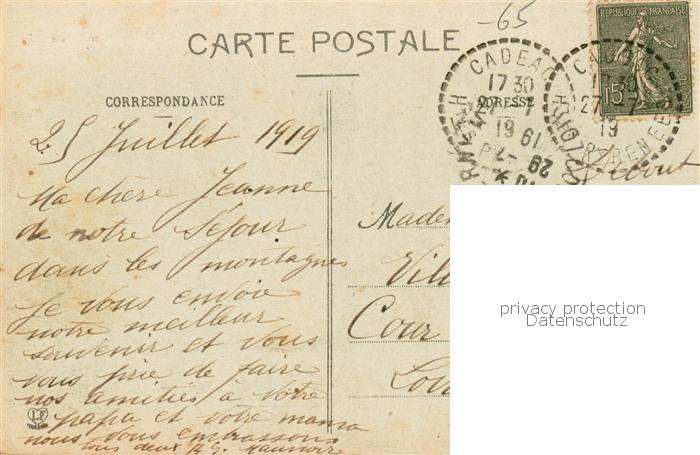 -65
CARTE POSTALE
REPUBLIQUE FRANÇAISE
15
CADEAC
17 30
27 -7
19
HTES PYRENEES
CORRESPONDANCE
ADRESSE
25 Juillet 1919
Ma chère Jeanne
de notre séjour
dans les montagnes
je vous envoie
notre meilleur
souvenir et vous
vous prie de faire
nos amitiés à votre
papa et votre mama
nous vous embrassons
tous deux
Madem
Cour
privacy protection
Datenschutz